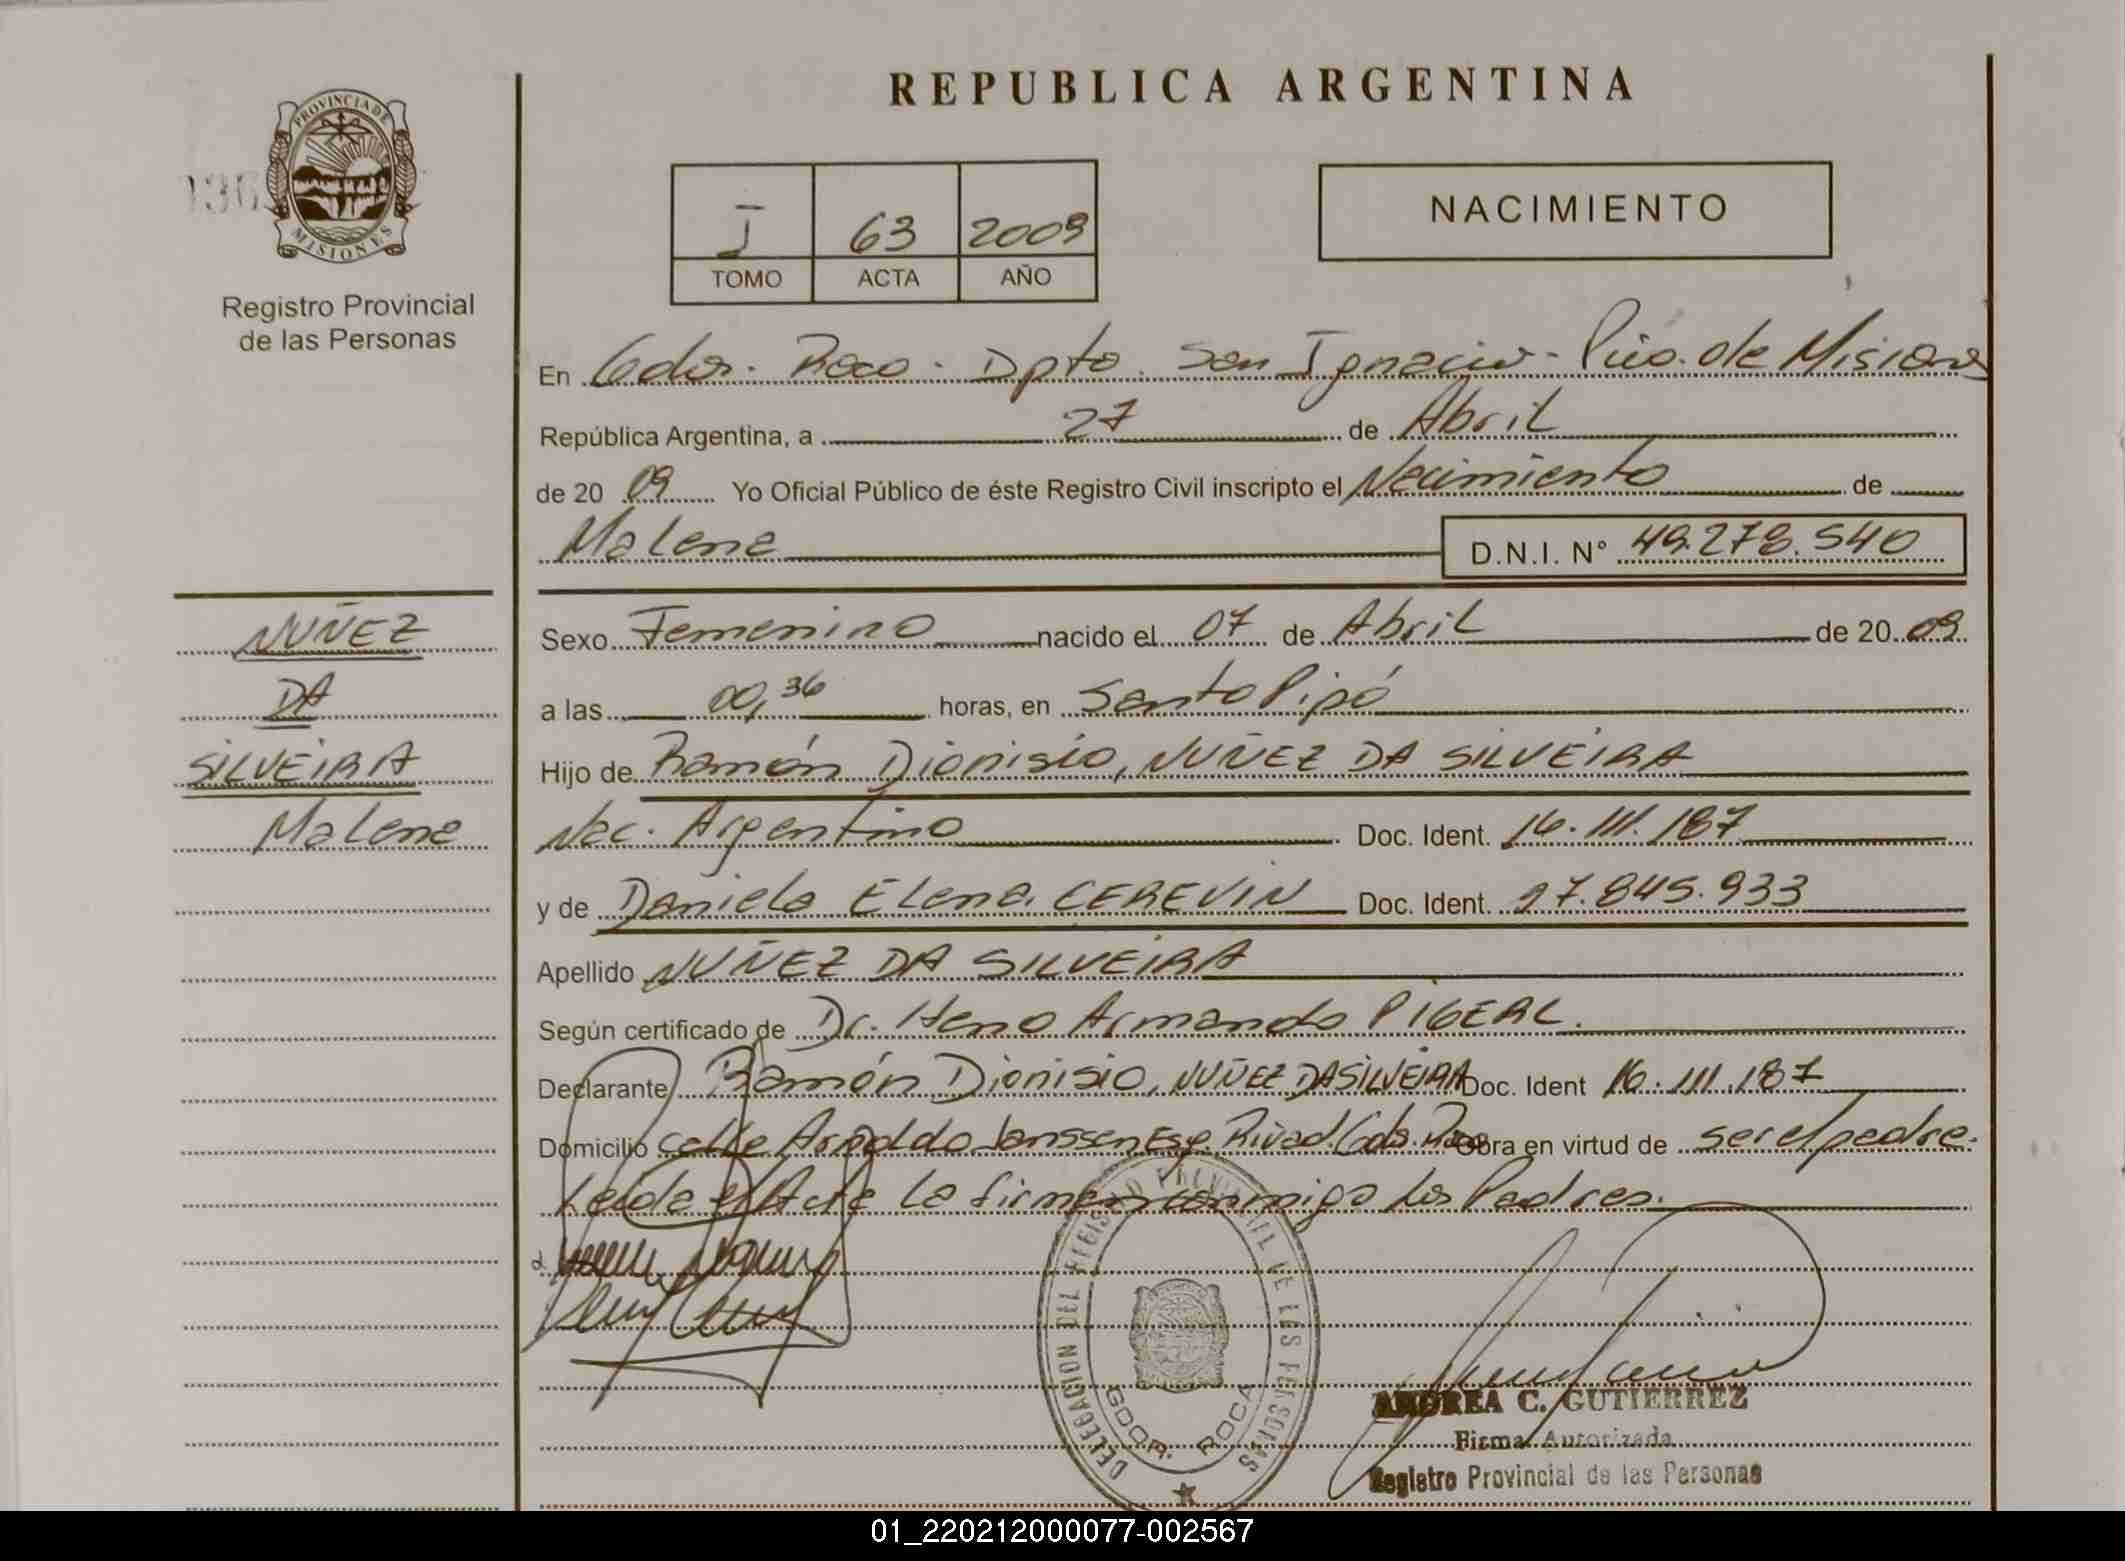 REPUBLICA ARGENTINA
PROVINCIA DE MISIONES
Registro Provincial
de las Personas
I 63 2009
TOMO ACTA AÑO
NACIMIENTO
En Gdor. Roca - Dpto. San Ignacio - Pcia. de Misiones
República Argentina, a 27 de Abril
de 2009 Yo Oficial Público de éste Registro Civil inscripto el Nacimiento de
Malena D.N.I. N° 49.278.540
NUÑEZ
DA
SILVEIRA
Malena
Sexo Femenino nacido el 07 de Abril de 2009
a las 00,36 horas, en Santo Pipó
Hijo de Ramón Dionisio, NUÑEZ DA SILVEIRA
Nac. Argentino Doc. Ident. 16.111.187
y de Daniela Elena, CEREVIN Doc. Ident. 27.845.933
Apellido NUÑEZ DA SILVEIRA
Según certificado de Dr. Armando PIGERL.
Declarante Ramón Dionisio, NUÑEZ DA SILVEIRA Doc. Ident 16.111.187
Domicilio calle Arnoldo Janssen Esq. Rivad. Gdor. Roca Obra en virtud de ser el padre.
Leída el Acta la firman conmigo los Padres.
DELEGACION DEL REGISTRO PROVINCIAL DE LAS PERSONAS
GDOR. ROCA
ANDREA C. GUTIERREZ
Firma Autorizada
Registro Provincial de las Personas
01_220212000077-002567